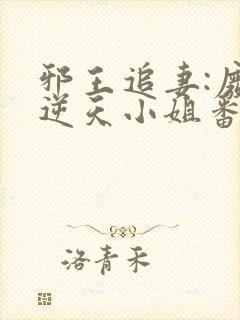 邪王追妻:废
逆天小姐番
洛青禾